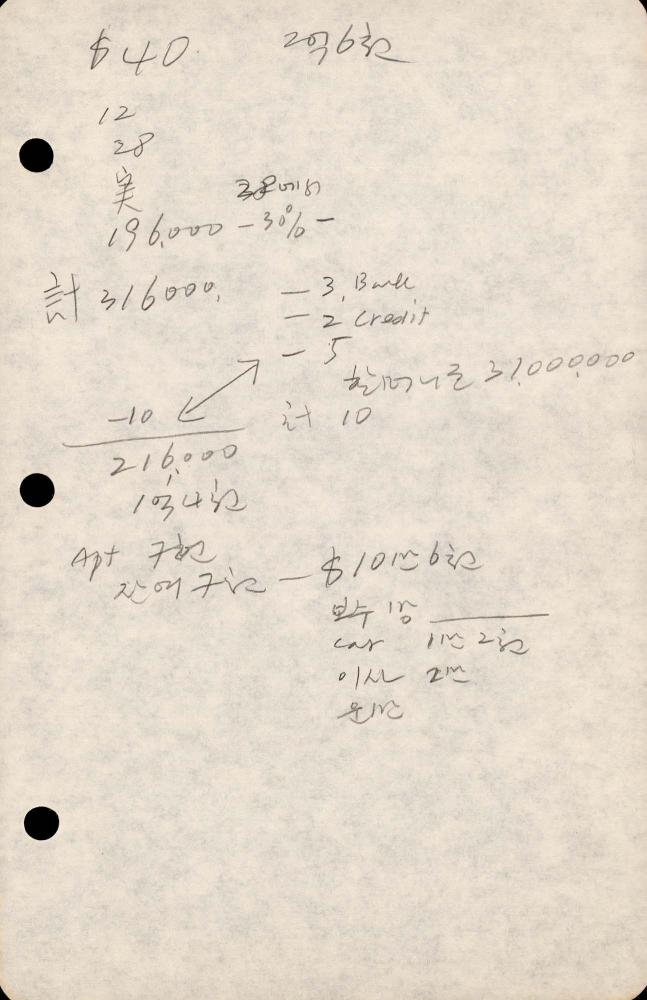 $40 2억6천
12
28
実
38에서
196,000 - 30% -
計 316000, - 3. Bank
- 2 Credit
- 5
할머니로 37,000,000
-10 計 10
216,000
1억4천
Apt 7천
잔여 7천 - $10만 6천
보수 1만
car 1만 2천
이사 2만